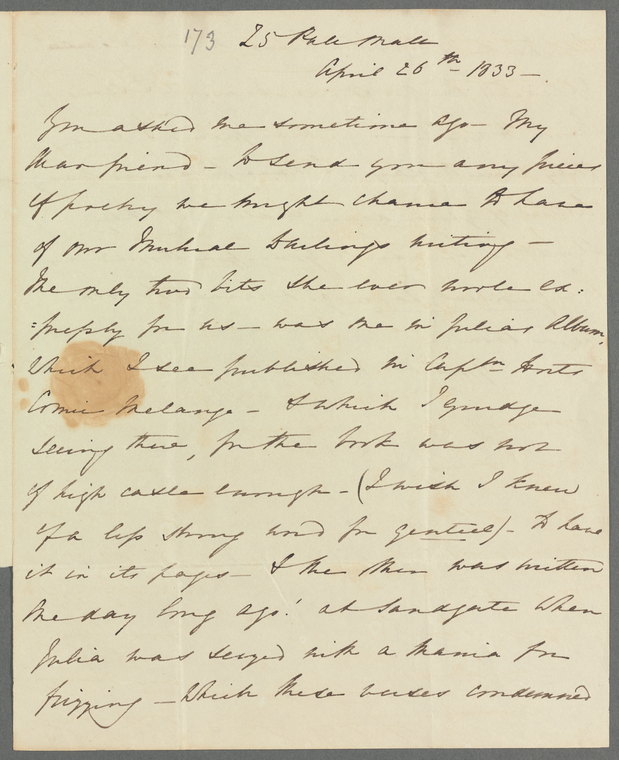 173 25 Pall Mall
April 26th 1833 -
You asked me sometime ago - My
dear friend - to send you any pieces
of poetry we might chance to have
of our Mutual Darlings writing -
The only two bits she ever wrote ex:
:pressly for us - was one in Julias Album,
which I see published in Captn
Comic Melange - & which I grudge
seeing there, for the book was not
of high caste enough - (I wish I knew
of a less strong word for genteel) - to have
it in its pages - & the other was written
one day long ago! at Sandgate when
Julia was seized with a mania for
frizzing - which these verses condemned